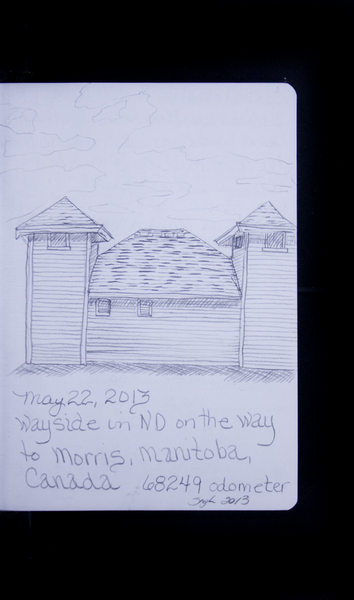 May 22, 2013
Wayside in ND on the way
to Morris, Manitoba,
Canada 68249 odometer
2013